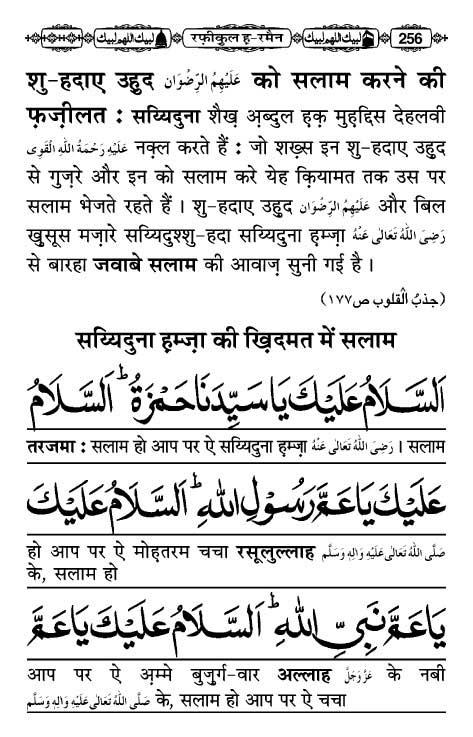 لبيك اللهم لبيك रफ़ीकुल ह-रमैन لبيك اللهم لبيك 256
शु-हदाए उहुद عَلَيْهِمُ الرِّضْوَان को सलाम करने की
फ़ज़ीलत : सय्यिदुना शैख़ अ़ब्दुल ह़क़ मुह़द्दिस देहलवी
عَلَيْهِ رَحْمَةُ اللّٰهِ الْقَوِى नक़्ल करते हैं : जो शख़्स इन शु-हदाए उहुद
से गुज़रे और इन को सलाम करे येह क़ियामत तक उस पर
सलाम भेजते रहते हैं । शु-हदाए उहुद عَلَيْهِمُ الرِّضْوَان और बिल
ख़ुसूस मज़ारे सय्यिदुश्शु-हदा सय्यिदुना ह़म्ज़ा رَضِىَ اللّٰهُ تَعَالٰى عَنْهُ
से बारहा जवाबे सलाम की आवाज़ सुनी गई है ।
(جذبُ الْقلوب ص١٧٧)
सय्यिदुना ह़म्ज़ा की ख़िदमत में सलाम
اَلسَّلَامُ عَلَيْكَ يَا سَيِّدَنَا حَمْزَةُ ؕ اَلسَّلَامُ
तरजमा : सलाम हो आप पर ऐ सय्यिदुना ह़म्ज़ा رَضِىَ اللّٰهُ تَعَالٰى عَنْهُ । सलाम
عَلَيْكَ يَا عَمَّ رَسُوْلِ اللّٰهِ ؕ اَلسَّلَامُ عَلَيْكَ
हो आप पर ऐ मोहतरम चचा रसूलुल्लाह صَلَّى اللّٰهُ تَعَالٰى عَلَيْهِ وَاٰلِهٖ وَسَلَّم
के, सलाम हो
يَا عَمَّ نَبِيِّ اللّٰهِ ؕ اَلسَّلَامُ عَلَيْكَ يَا عَمَّ
आप पर ऐ अ़म्मे बुज़ुर्ग-वार अल्लाह عَزَّوَجَلَّ के नबी
صَلَّى اللّٰهُ تَعَالٰى عَلَيْهِ وَاٰلِهٖ وَسَلَّم के, सलाम हो आप पर ऐ चचा